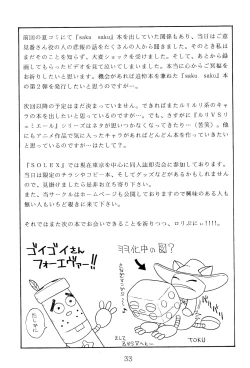 前回の夏コミにて『saku saku』本を出していた関係もあり、当日はご意
見番さん役の人の悲報の話をたくさんの人から聞きました。そのとき私は
まだそのことを知らず、大変ショックを受けました。そして、あとから録
画してもらったビデオを見て泣いてしまいました。本当に心からご冥福を
お祈りしたいと思います。機会があれば追悼本を兼ねた『saku saku』本
の第2弾を発行したいと思うのですが…。
次回以降の予定はまだ決まっていません。できればまたルリルリ系のキャ
ラの本を出したいと思っているのですが…。でも、さすがに『るりVSリ
ェミエール』シリーズはネタが思いつかなくなってきたり…（苦笑）。他
にもアニメ作品で気に入ったキャラがあればどんどん本を作っていきたい
と思っているのですが…はたして？。
『SOLEX』では現在東京を中心に同人誌即売会に参加しております。
当日は限定のチラシやコピー本、そしてグッズなどがあるかもしれません
ので、見掛けましたら是非お立ち寄り下さい。
また、当サークルはホームページも公開しておりますので興味のある人も
無い人もいちど覗きに来て下さい。
それではまた次の本でお会いできることを祈りつつ。ロリぷにぃ!!!!。
ゴイゴイさん
フォーエヴァー!!
ヨヨ化中の図？
TOKU
33